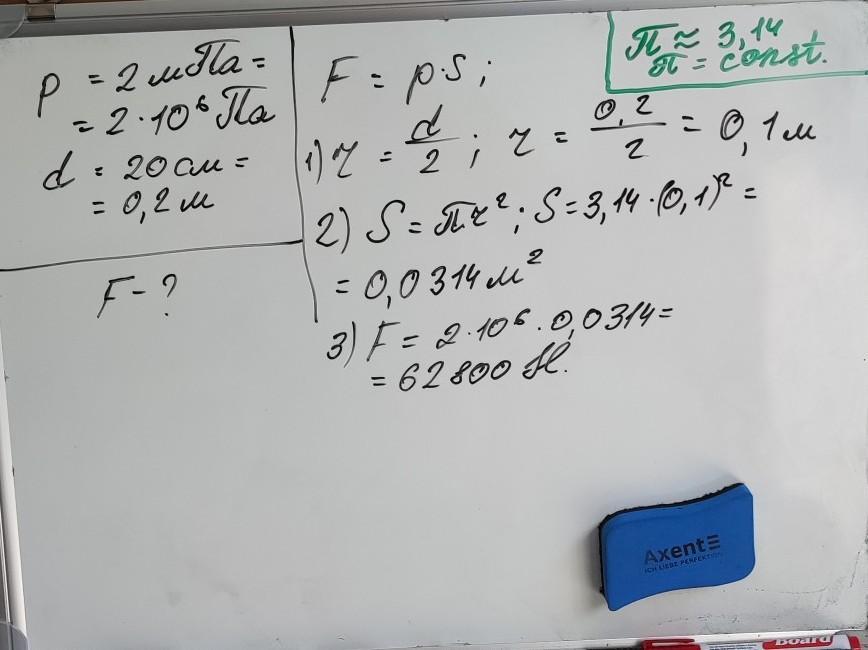 p = 2 мПа =
= 2·10⁶ Па
d = 20 см =
= 0,2 м
F - ?
F = p·S;
1) r = d/2; r = 0,2/2 = 0,1 м
2) S = πr²; S = 3,14·(0,1)² =
= 0,0314 м²
3) F = 2·10⁶·0,0314 =
= 62800 Н.
π ≈ 3,14
π = const.
Axent
ICH LIEBE PERFEKTION
Board